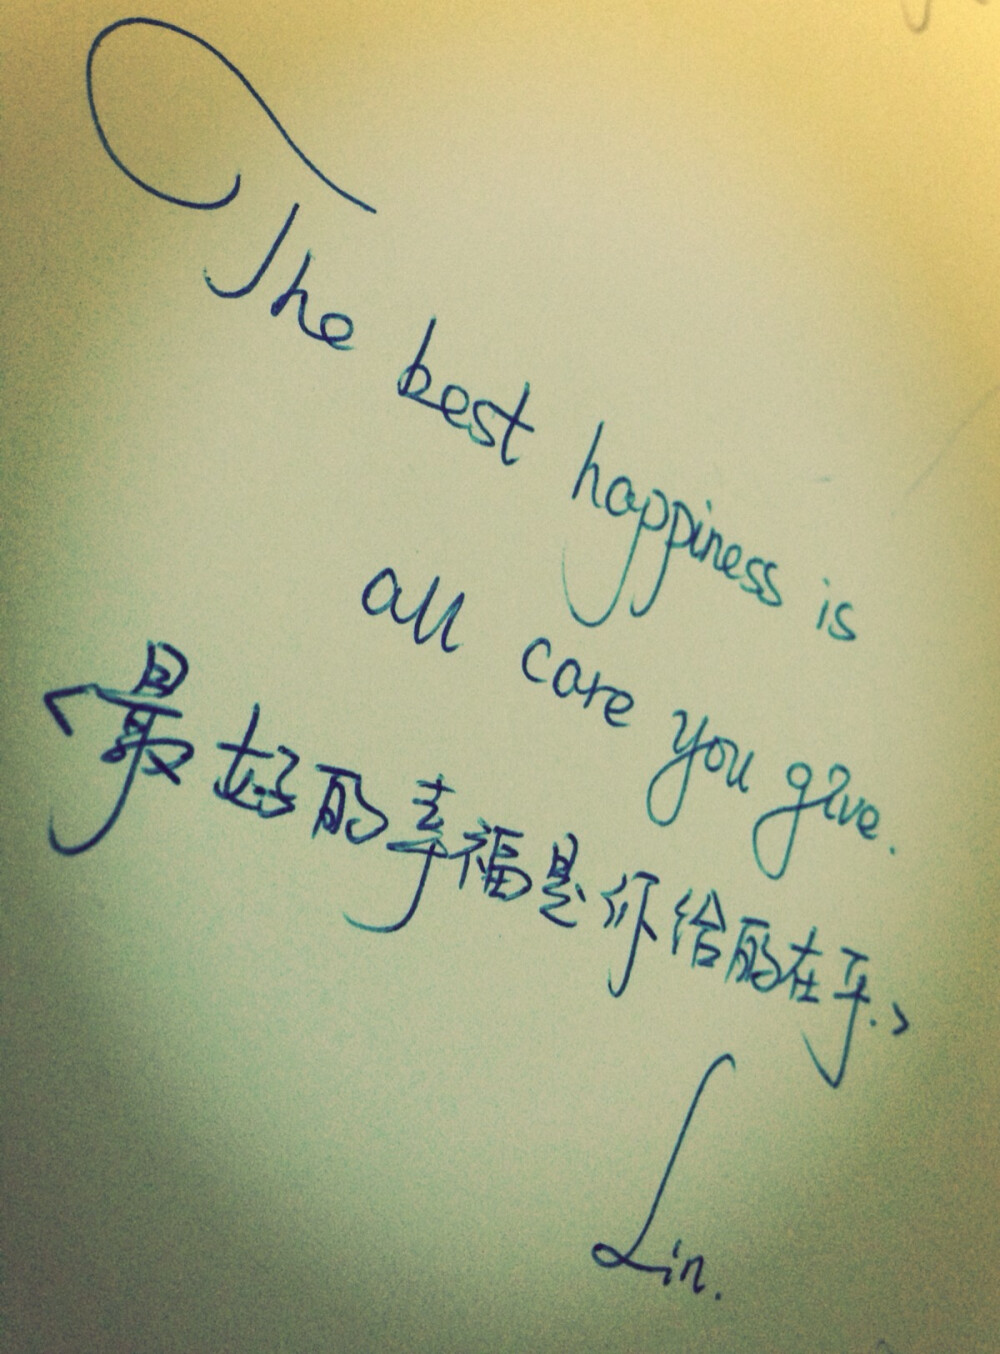 The best happiness is
all care you give.
<最好的幸福是你给的在乎.>
Lin.